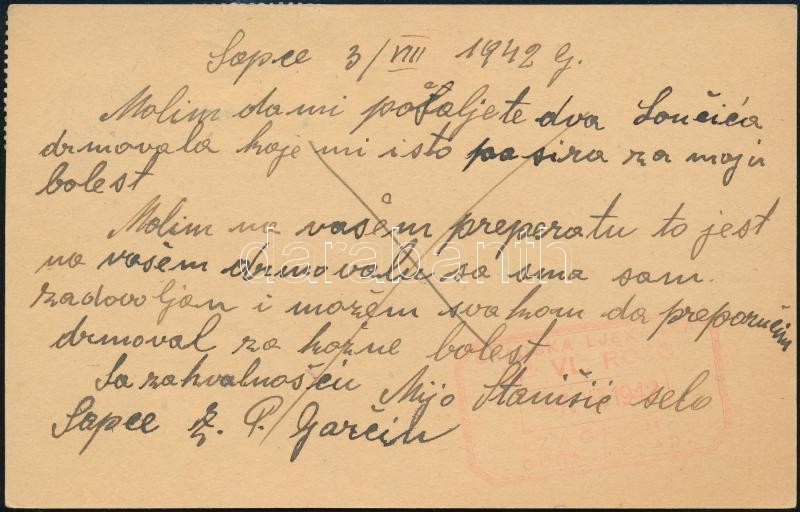 Sapce 3/VIII 1942 g.
Molim da mi pošaljete dva Lončića
drmovala koje mi isto pasira za moju
bolest
Molim na vašem preperatu to jest
na vašem drmovalu sa sma sam
zadovoljan i možem svakom da preporučim
drmoval za kožne bolest
Sa zahvalnošću Mijo Stanišić selo
Sapce Ž. P. Garčin
darabanth
SKA LJEK
VI. RO
1942
ZAG